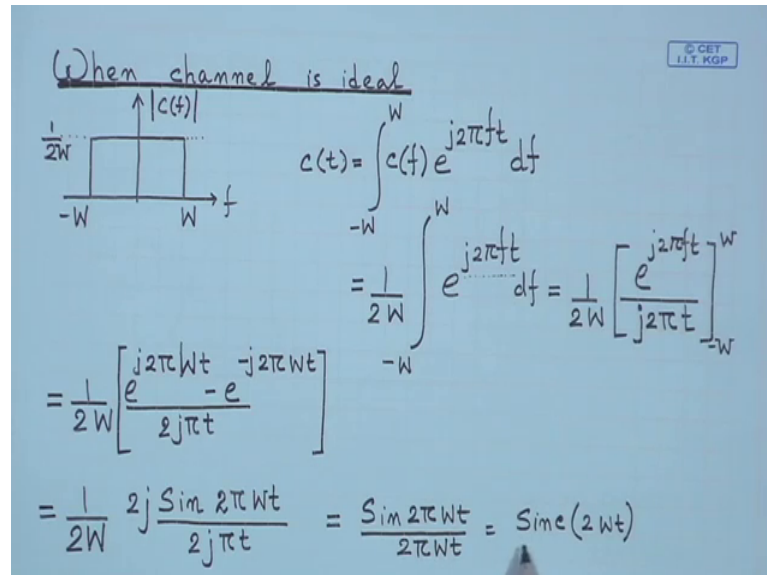 When channel is ideal
© CET
I.I.T. KGP
|C(f)|
1/2W
-W W f
c(t) = ∫_{-W}^{W} c(f) e^{j2πft} df
= 1/2W ∫_{-W}^{W} e^{j2πft} df = 1/2W [e^{j2πft} / j2πt]_{-W}^{W}
= 1/2W [e^{j2πWt} - e^{-j2πWt} / 2jπt]
= 1/2W 2j Sin 2πWt / 2jπt = Sin 2πWt / 2πWt = Sinc (2Wt)